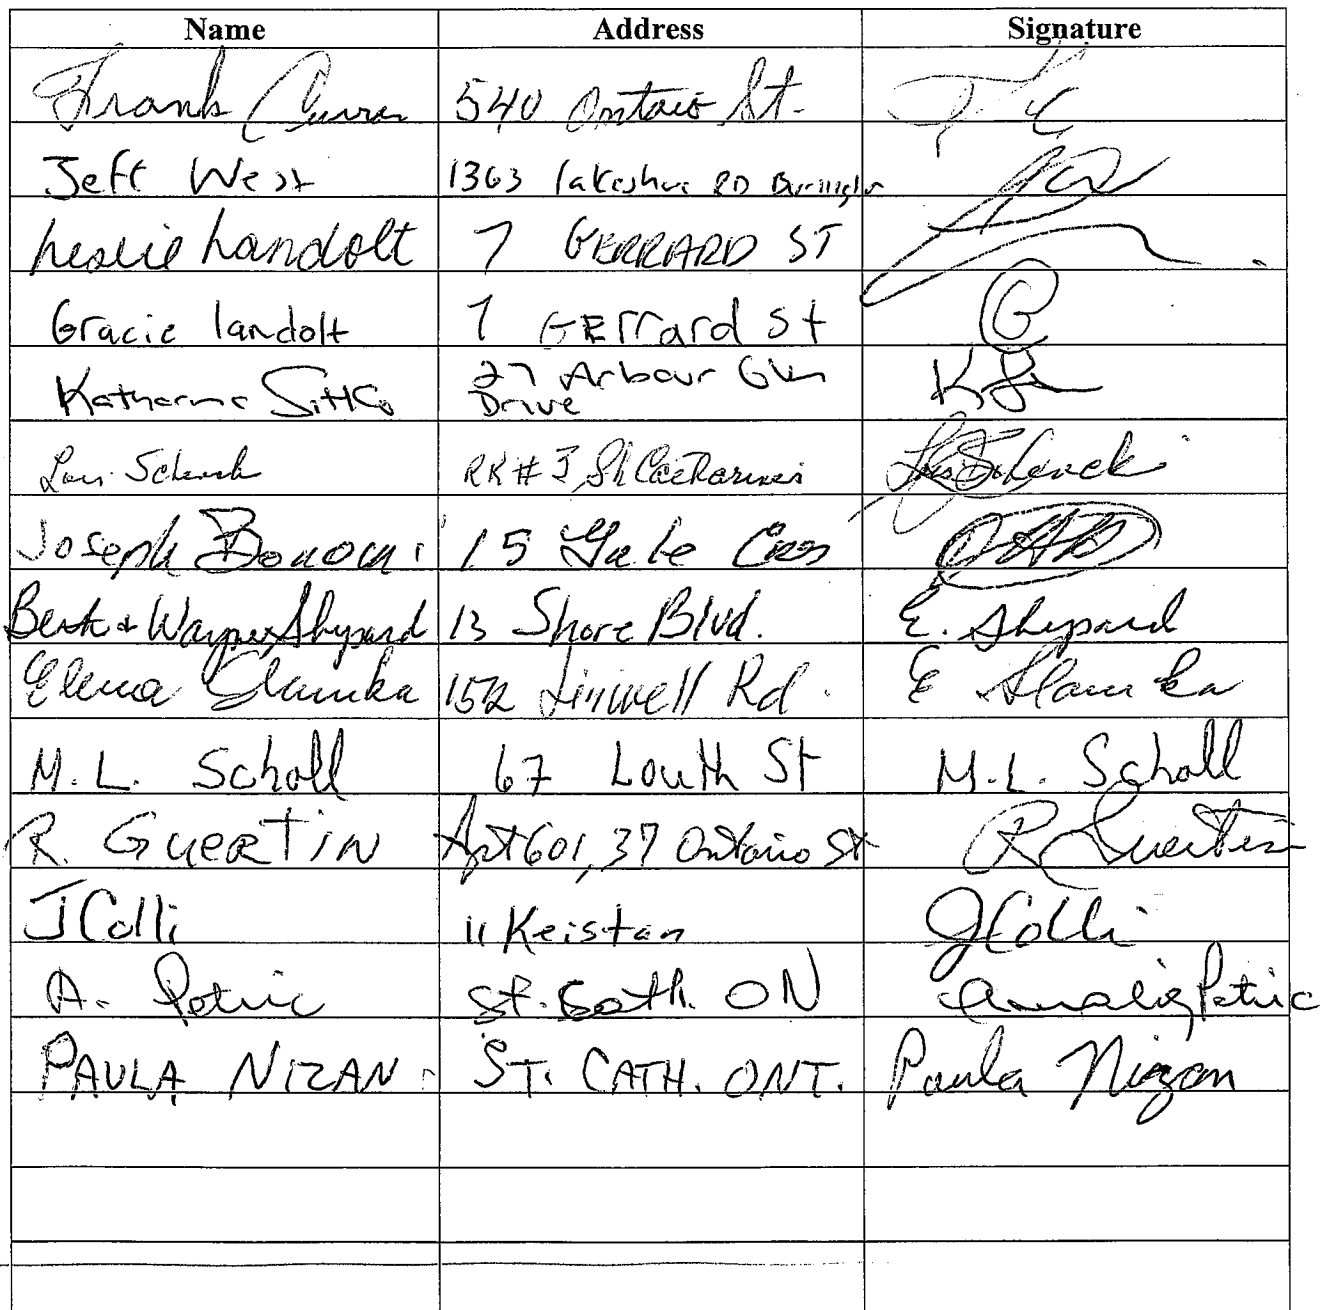 Name Address Signature
Frank Curran 540 Ontario St.
Jeff West 1363 lakeshore RD Burlington
Leslie Landolt 7 GERRARD ST
Gracie landolt 7 GERrard St G
27 Arbour Glen
Katharine Drive
Lori Schenck RR#3 St Catharines Lori Schenck
Joseph Bonomi 15 Yale Cres
Wayne Shepard 13 Shore Blvd. E. Shepard
Elena Slamka 152 Linwell Rd. E Slamka
M. L. Scholl 67 Louth St M. L. Scholl
R. GUERTIN Apt 601, 37 Ontario St R Guertin
J Colli 11 Keistan J Colli
A. Petric St. Cath. ON Amalia Petric
PAULA NIZAN ST. CATH. ONT. Paula Nizan